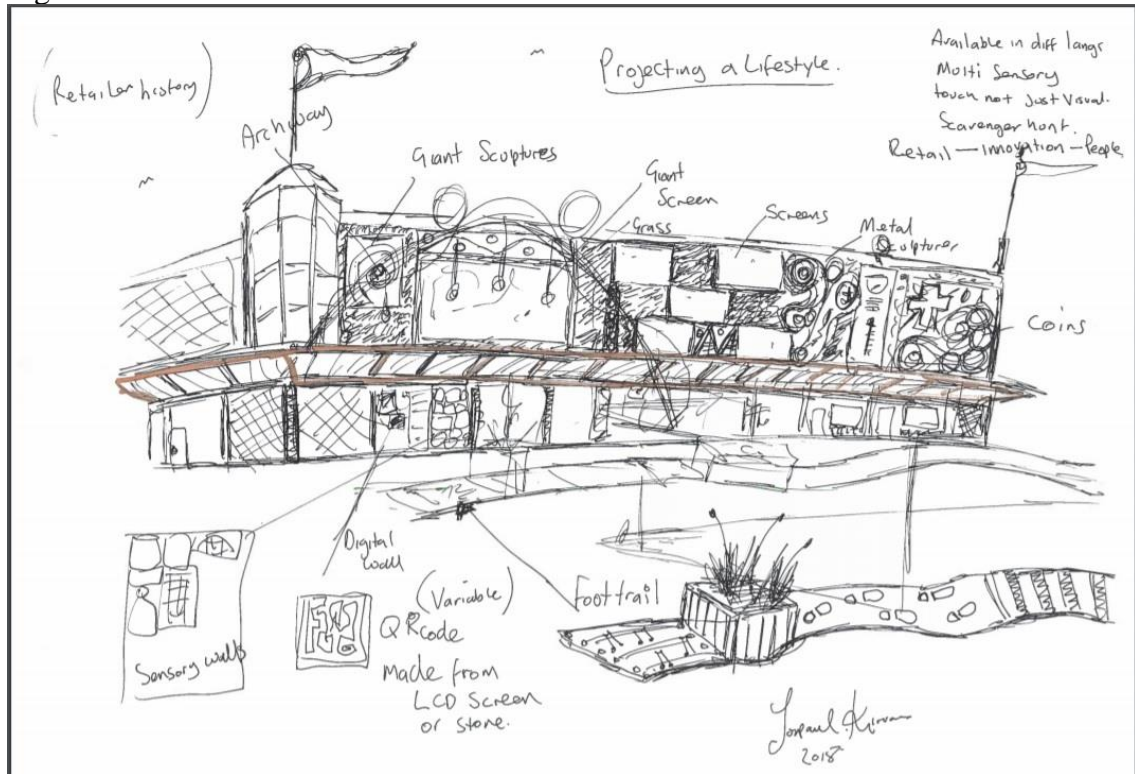 (Retailer history)
Projecting a Lifestyle.
Available in diff langs
Multi Sensory
touch not Just Visual.
Scavenger hunt.
Retail — innovation — People
Archway
Giant Sculptures
Giant
Screen
Grass
Screens
Metal
Sculptures
Coins
Digital
Wall
(Variable)
QR code
Made from
LCD Screen
or stone.
Foottrail
Sensory walls
2018